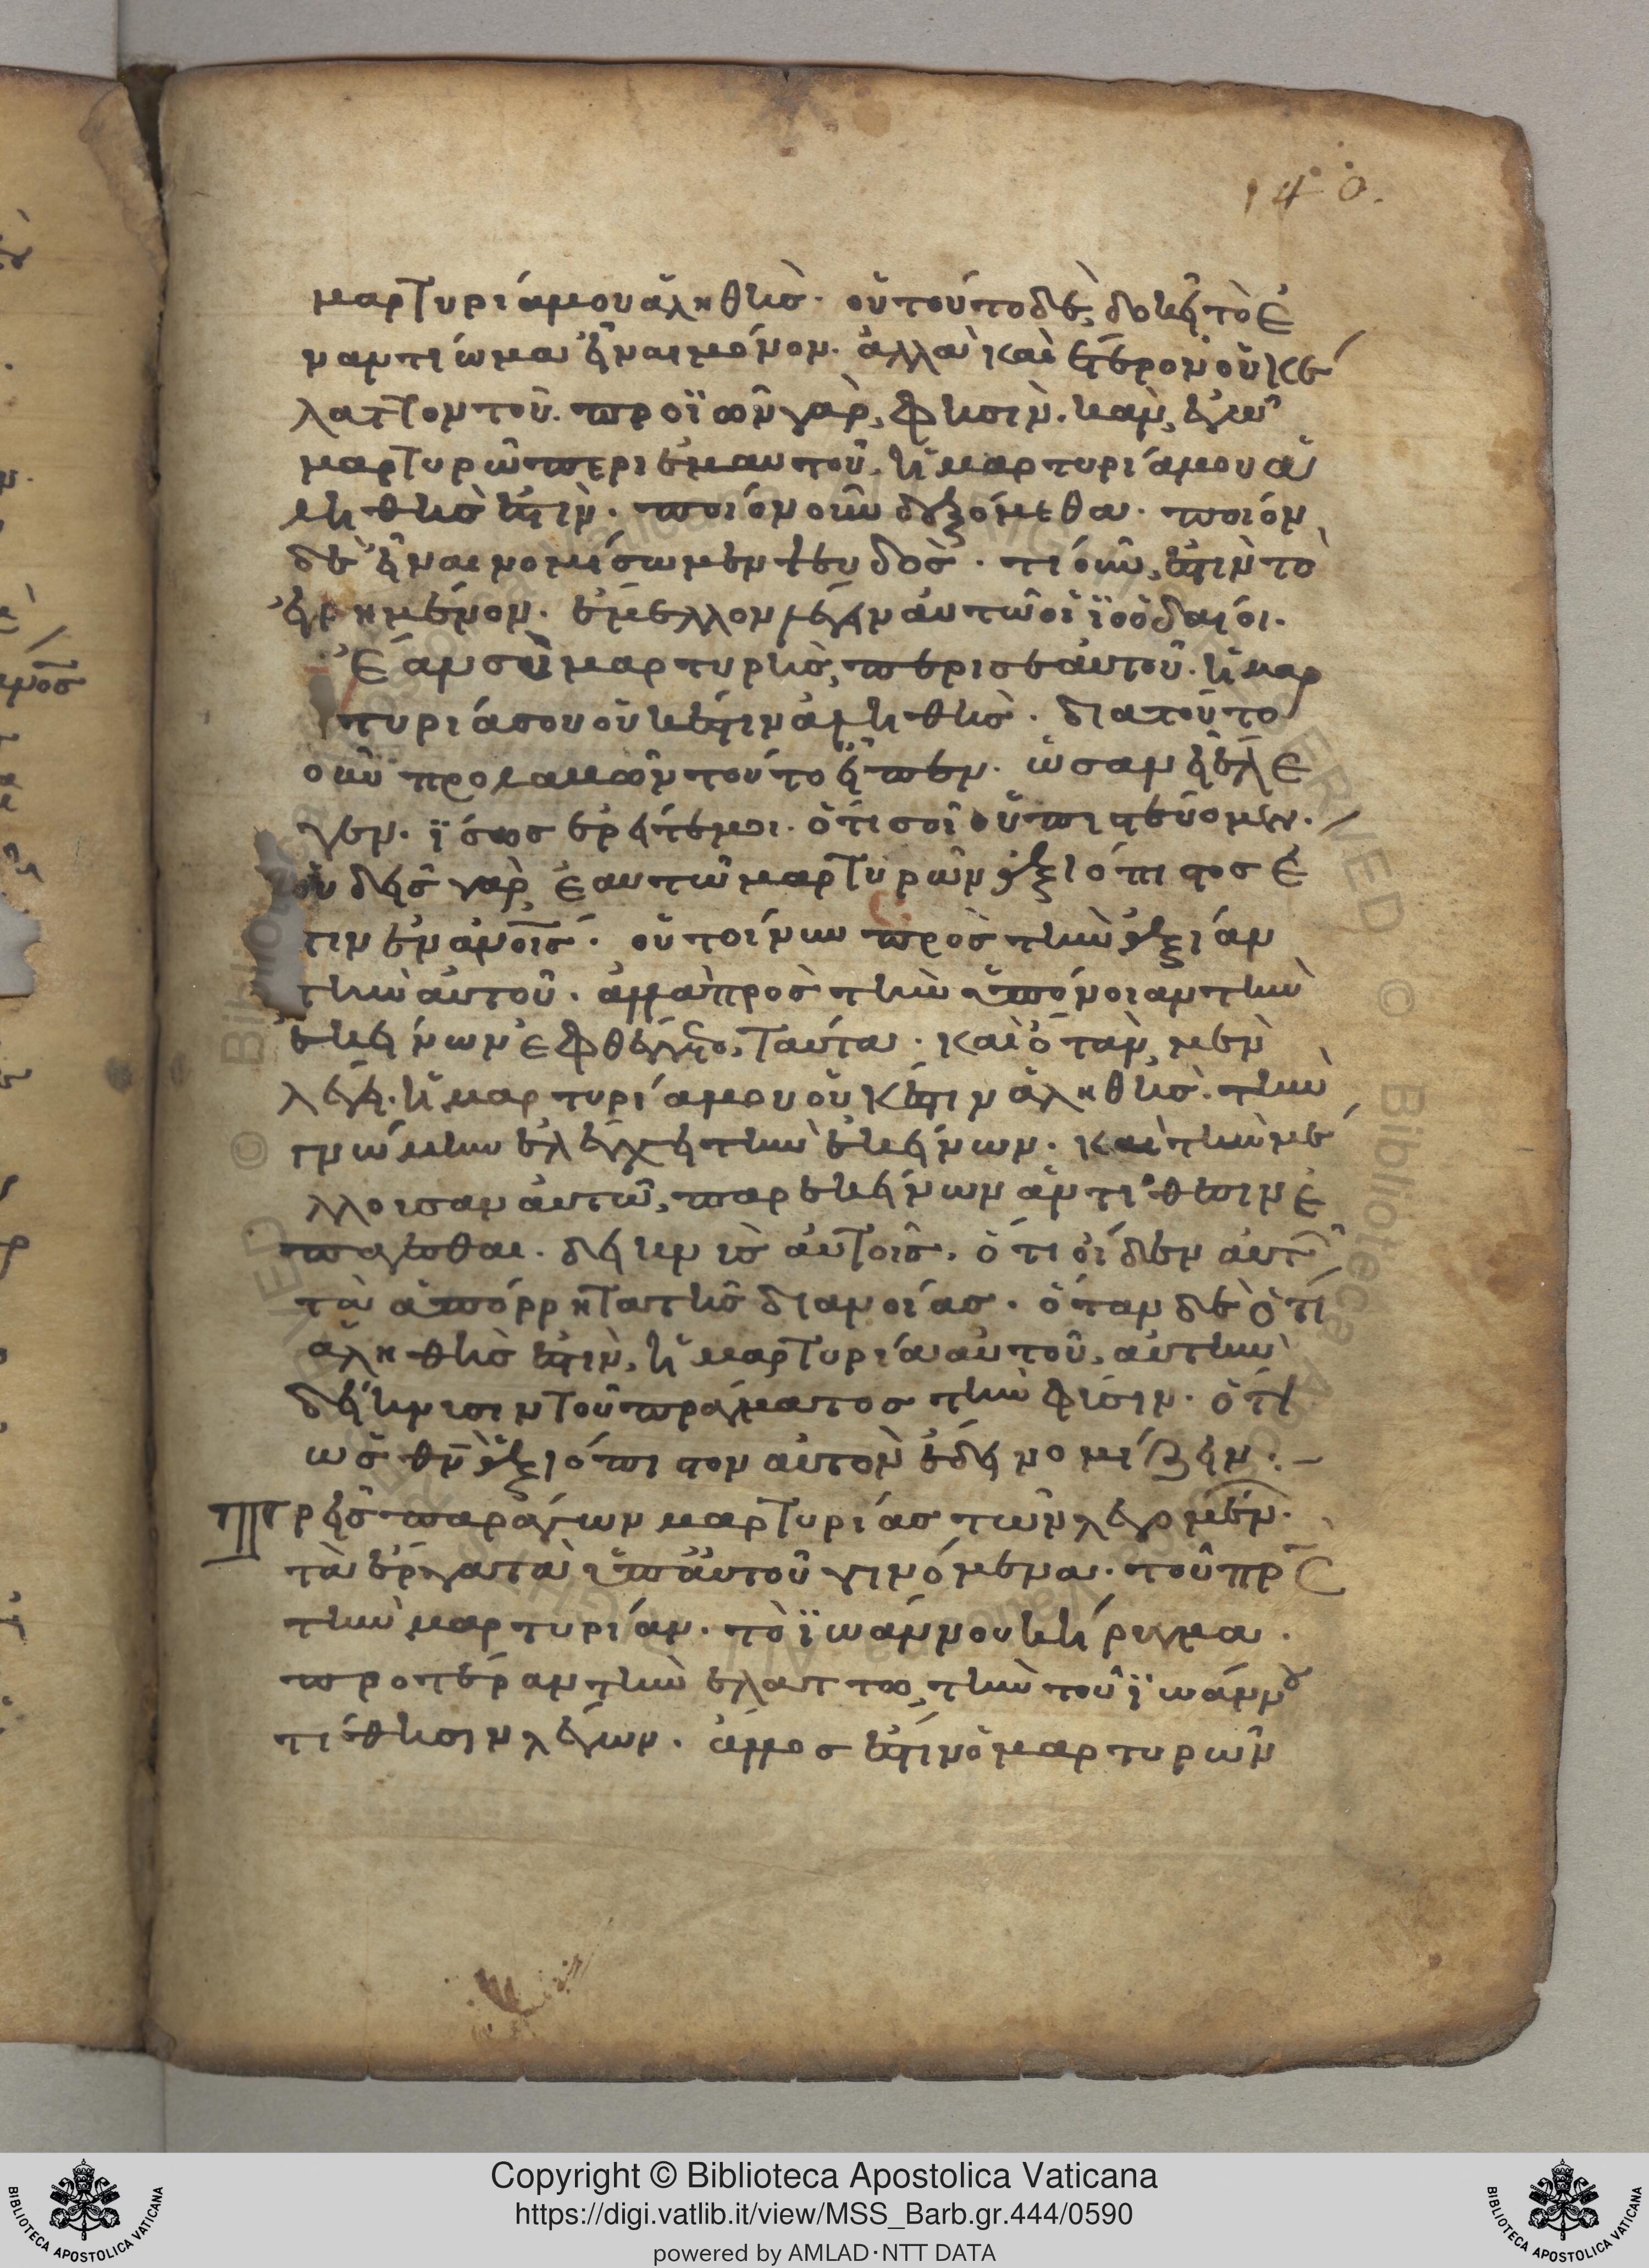 140.
μαρτυρία μου ἀληθὴς· οὐ τοῦτο δὲ, δοκεῖ τὸ ἐ
ναντίωμα εἶναι μόνον· ἀλλὰ καὶ ἕτερον οὐκ ἔ
λαττον τοῦ. προϊὼν γὰρ, φησὶν. κἂν, ἐγὼ
μαρτυρῶ περὶ ἐμαυτοῦ, ἡ μαρτυρία μου ἀ
ληθὴς ἐστὶν· ποῖον οὖν δεξόμεθα· ποῖον
δὲ εἶναι νομίσωμεν ψευδὸς· τί οὖν, ἐστὶν τὸ
εἰρημένον· ἔμελλον λέγειν αὐτῶ οἱ ἰουδαῖοι·
Ἐὰν σὺ μαρτυρῆς, περὶ σεαυτοῦ· ἡ μαρ
τυρία σου οὐκ ἔστιν ἀληθὴς· διατοῦτο
οὖν προλαβὼν τοῦτο εἶπεν· ὡσὰν εἰ ἔλε
γεν· ἴσως ἐρεῖτέ μοι· ὅτι σοὶ οὐ πιστεύομεν·
οὐδεὶς γὰρ ἑαυτῶ μαρτυρῶν ἀξιόπιστος ἐ
τιν ἐν ἀνοις· οὐ τοίνυν πρὸς τὴν ἀξίαν
τὴν αὐτοῦ· ἀλλὰ πρὸς τὴν ὑπόνοιαν τὴν
ἐκείνων ἐφθέγγετο, ταῦτα· καὶ ὅταν, μὲν
λέγη· ἡ μαρτυρία μου οὐκ ἔστιν ἀληθὴς· τὴν
γνώμην ἐλέγχει τὴν ἐκείνων· καὶ τὴν μέ
λλουσαν αὐτῶ, παρ ἐκείνων ἀντίθεσιν ἐ
πάγεσθαι· δεικνὺς αὐτοῖς· ὅτι οἶδεν αὐτ
τὰ ἀπόρρητα τῆς διανοίας· ὅταν δὲ ὅτι
ἀληθὴς ἐστὶν, ἡ μαρτυρία αὐτοῦ, αὐτὴν
δείκνυσιν τοῦ πράγματος τὴν φύσιν· ὅτι
ὡς θν ἀξιόπιστον αὐτὸν ἔδει νομίζειν:-
Τρεῖς παράγων μαρτυρίας τῶν λεγομέν·
τὰ ἔργα τὰ ὑπ αὐτοῦ γινόμενα· τοῦ πρς
τὴν μαρτυρίαν· τὸ ἰωάννου κήρυγμα·
προτέραν τὴν ἐλάττω, τὴν τοῦ ἰωάννου
τίθησιν λέγων· ἄλλος ἐστὶν ὁ μαρτυρῶν
Copyright © Biblioteca Apostolica Vaticana
https://digi.vatlib.it/view/MSS_Barb.gr.444/0590
powered by AMLAD·NTT DATA